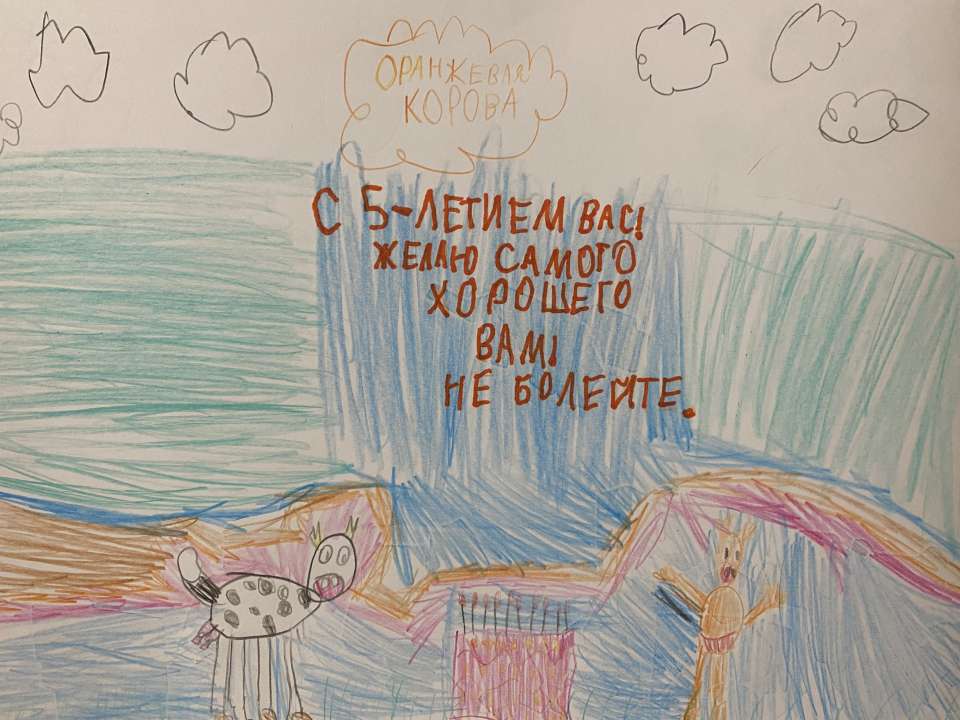 ОРАНЖЕВАЯ
КОРОВА
С 5-ЛЕТИЕМ ВАС!
ЖЕЛАЮ САМОГО
ХОРОШЕГО
ВАМ!
НЕ БОЛЕЙТЕ.